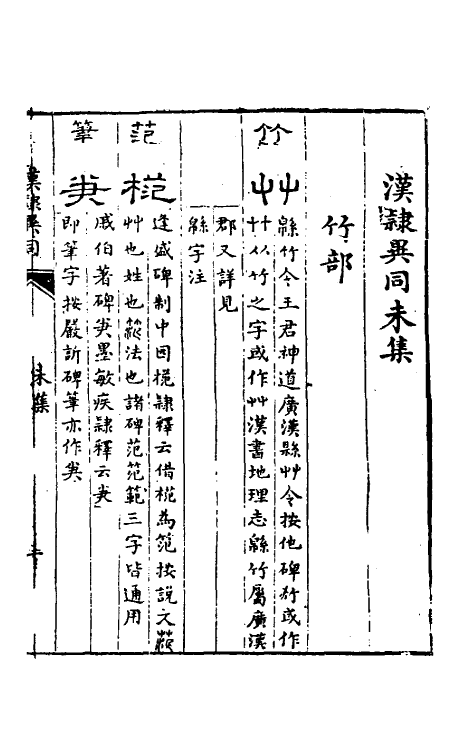 漢隸異同未集
竹部
竹
艸
緜竹令王君神道廣漢縣艸令按他碑竹或作
艹从竹之字或作艸漢書地理志緜竹屬廣漢
郡又詳見
緜字注
范
逢盛碑制中因㮄隸釋云借㮄為范按說文
艸也姓也範法也諸碑范笵範三字皆通用
筆
戚伯著碑筆墨敏疾隸釋云
即筆字按嚴訢碑筆亦作
漢隸異同
未集